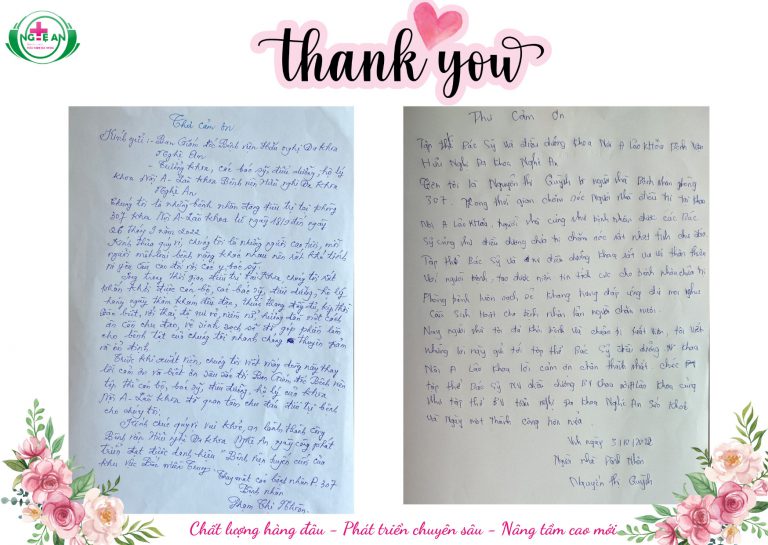 NGHỆ AN
thank you
Thư cảm ơn
Kính gửi: - Ban Giám đốc Bệnh viện Hữu nghị Đa khoa
Nghệ An
- Trưởng khoa, các bác sỹ, điều dưỡng, hộ lý
khoa Nội A - Lão khoa Bệnh viện Hữu nghị Đa khoa
Nghệ An
Chúng tôi là những bệnh nhân đang điều trị tại phòng
307 khoa Nội A - Lão khoa từ ngày 18/9 đến ngày
26 tháng 9 năm 2022
Kính thưa quý vị, chúng tôi là những người cao tuổi, mỗi
người mỗi loại bệnh nặng khác nhau nên rất khó tính
và yêu cầu cao đối với các y bác sỹ.
Song trong thời gian điều trị tại khoa, chúng tôi rất
phấn khởi được cán bộ, các bác sỹ, điều dưỡng, hộ lý
hàng ngày thăm khám đều đặn, thuốc thang đầy đủ, kịp thời
đặc biệt, với thái độ vui vẻ, niềm nở hướng dẫn một cách
ân cần chu đáo, vệ sinh sạch sẽ đã góp phần làm
cho bệnh tật của chúng tôi nhanh chóng thuyên giảm
và ổn định.
Trước khi xuất viện, chúng tôi viết mấy dòng này thay
lời cảm ơn và biết ơn sâu sắc tới Ban Giám đốc Bệnh viện
tập thể cán bộ, bác sỹ, điều dưỡng, hộ lý của khoa
Nội A - Lão khoa đã quan tâm chu đáo điều trị bệnh
cho chúng tôi.
Kính chúc quý vị vui khỏe, an lành, thành công
Bệnh viện Hữu nghị Đa khoa Nghệ An ngày càng phát
triển đạt được danh hiệu "Bệnh viện tuyến cuối của
khu vực Bắc miền Trung". Thay mặt các bệnh nhân P. 307
Bệnh nhân
Phạm Thị
Thư Cảm Ơn
Tập thể Bác Sỹ và điều dưỡng khoa Nội A Lão khoa Bệnh Viện
Hữu Nghị Đa Khoa Nghệ An
Tên tôi là Nguyễn Thị Quỳnh là người nhà Bệnh nhân phòng
307. Trong thời gian chăm sóc Người nhà điều trị tại khoa
Nội A Lão khoa, Người nhà cũng như bệnh nhân được các Bác
Sỹ cũng như điều dưỡng chữa trị chăm sóc rất nhiệt tình chu đáo.
Tập thể Bác Sỹ và điều dưỡng khoa rất vui vẻ thân thiện
với người bệnh, tạo được niềm tin tích cực cho bệnh nhân chữa trị
Phòng bệnh luôn sạch sẽ khang trang đáp ứng đủ mọi nhu
Cầu Sinh hoạt cho bệnh nhân lẫn người chăm nuôi.
Nay người nhà tôi đã khỏi bệnh và chuẩn bị xuất viện, tôi viết
những lời này gửi tới tập thể Bác Sỹ điều dưỡng khoa
Nội A Lão khoa lời cảm ơn chân thành nhất chúc
tập thể Bác Sỹ điều dưỡng khoa Nội A Lão Khoa cũng
như tập thể BV Hữu nghị Đa Khoa Nghệ An Sức khỏe
và Ngày một thành công hơn nữa.
Vinh ngày 3/10/2022
Người nhà Bệnh Nhân
Nguyễn Thị Quỳnh
Chất lượng hàng đầu - Phát triển chuyên sâu - Nâng tầm cao mới